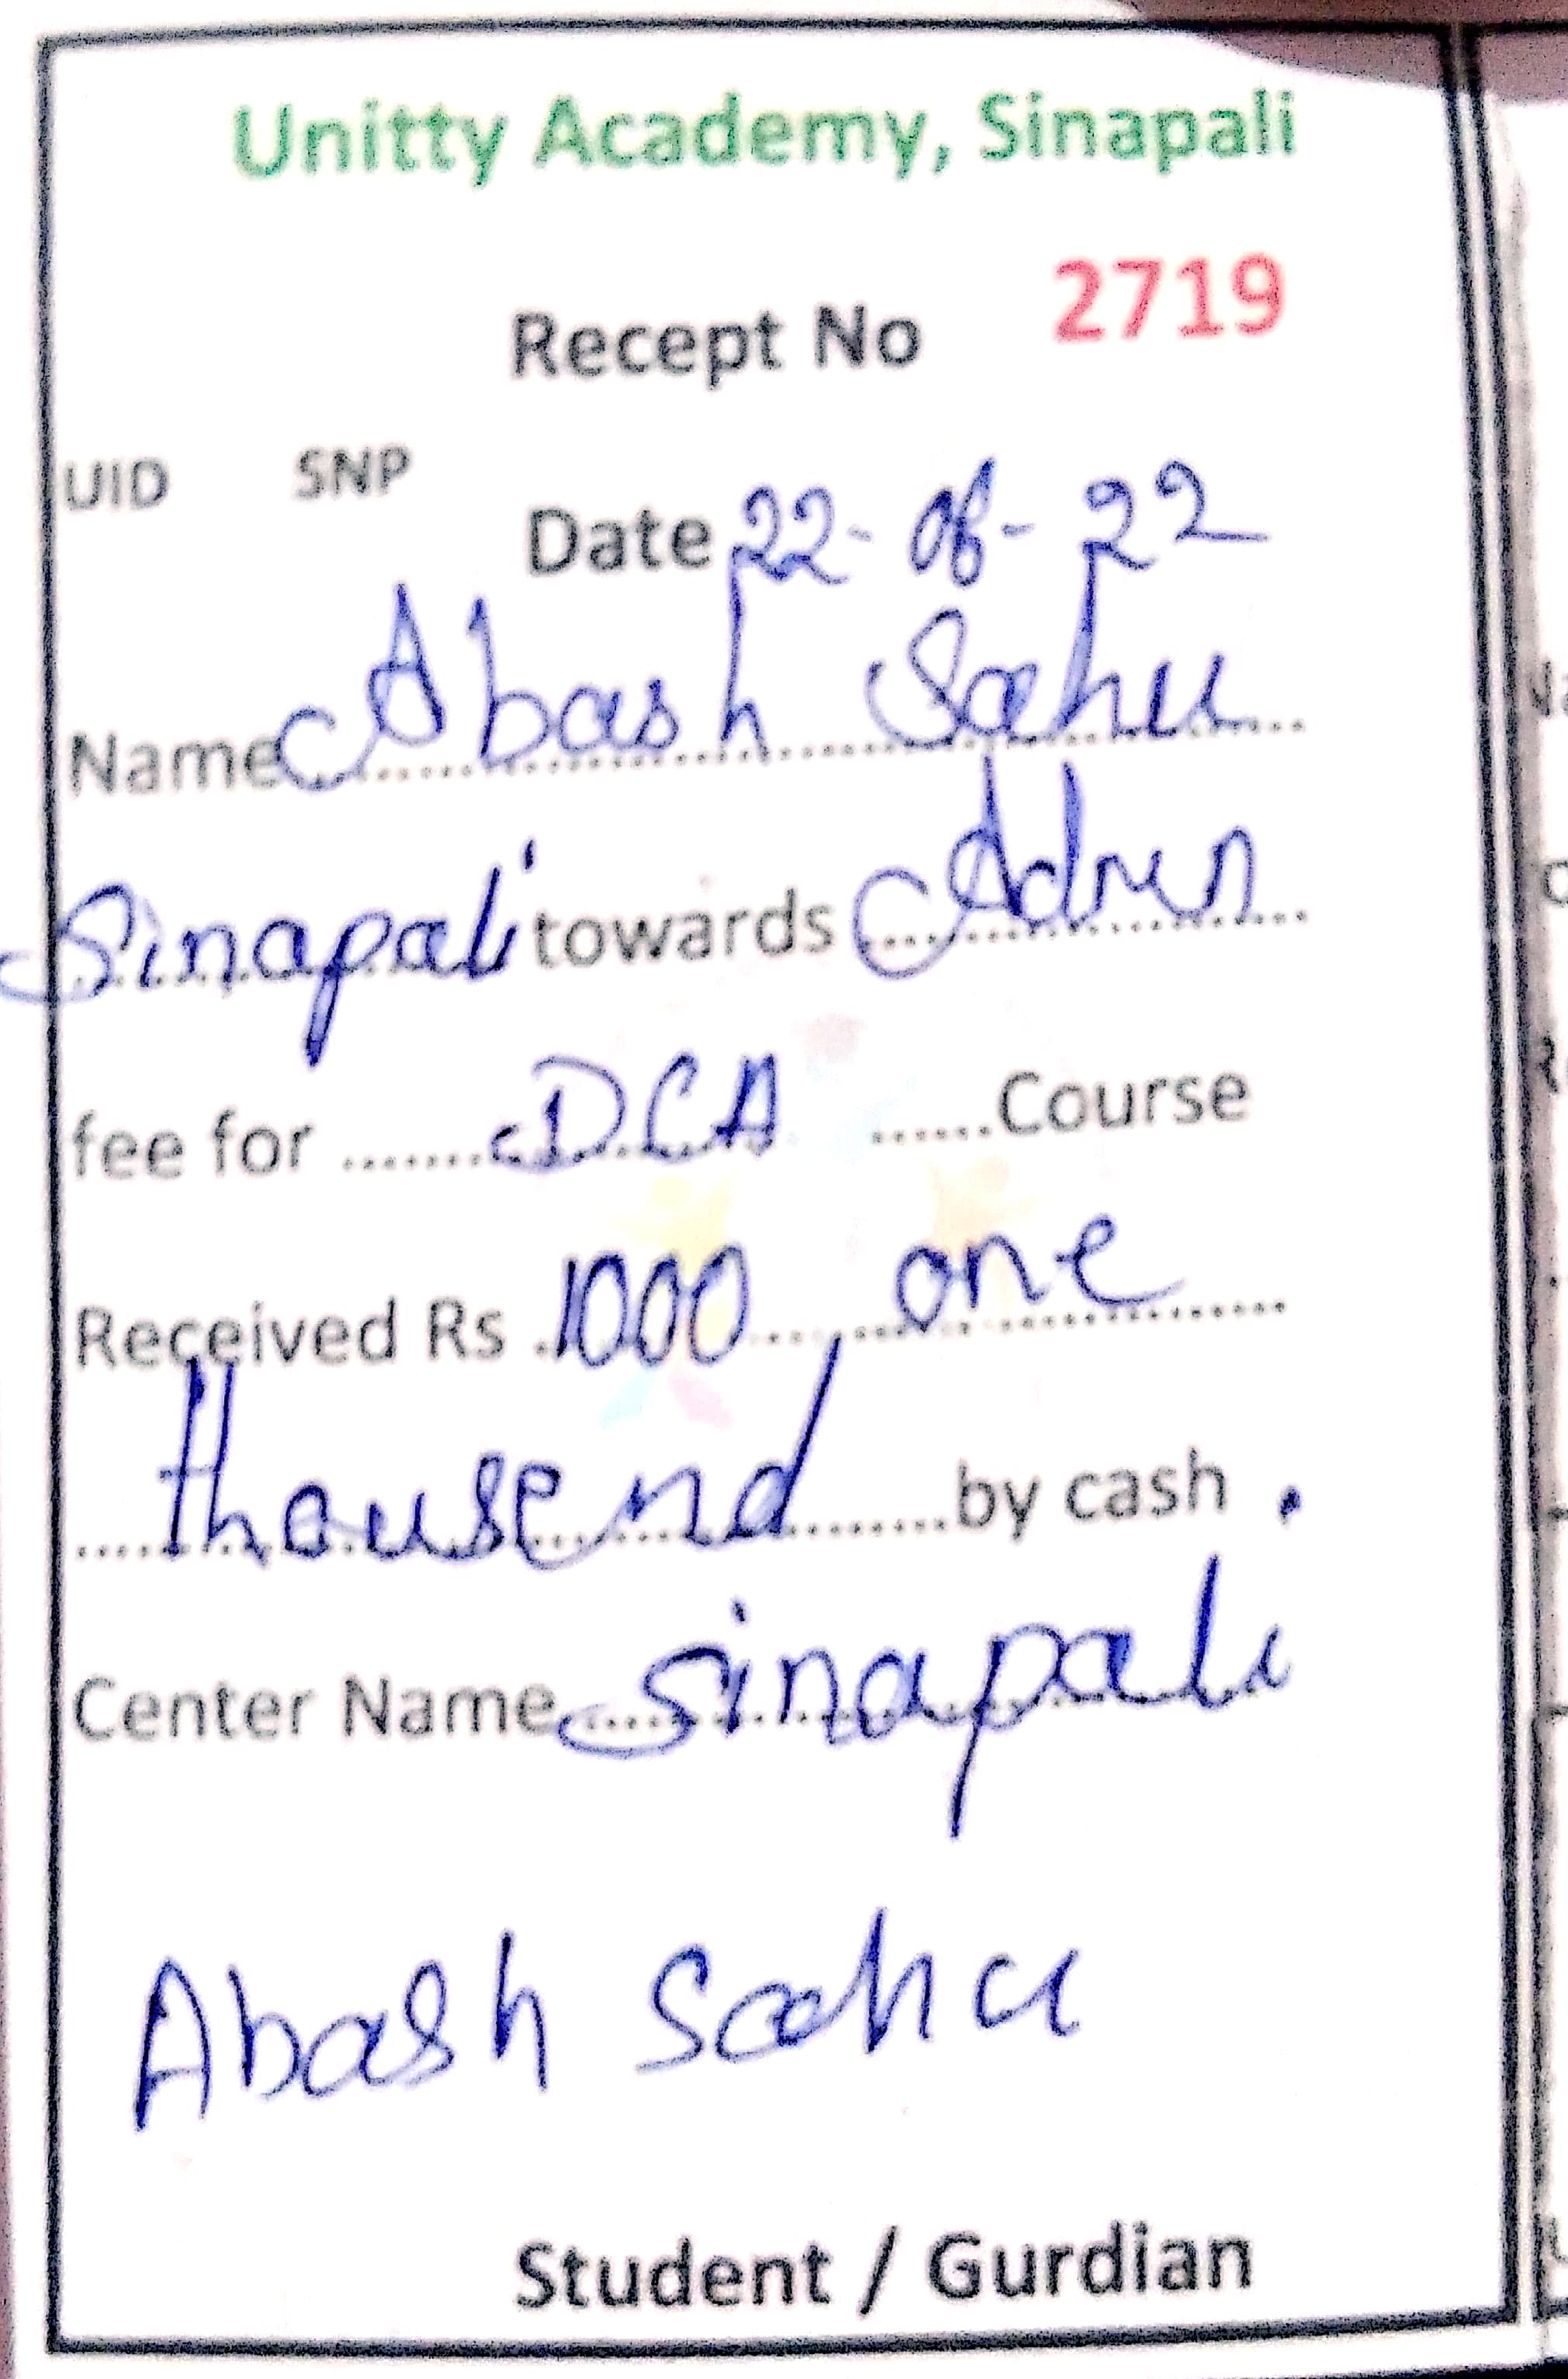 Unitty Academy, Sinapali
Recept No 2719
UID SNP
Date 22- 08- 22
Name Abash Sahu
Sinapali towards Admn
fee for ........DCA ......Course
Received Rs .1000 one
thousend by cash .
Center Name Sinapali
Abash Sahu
Student / Gurdian